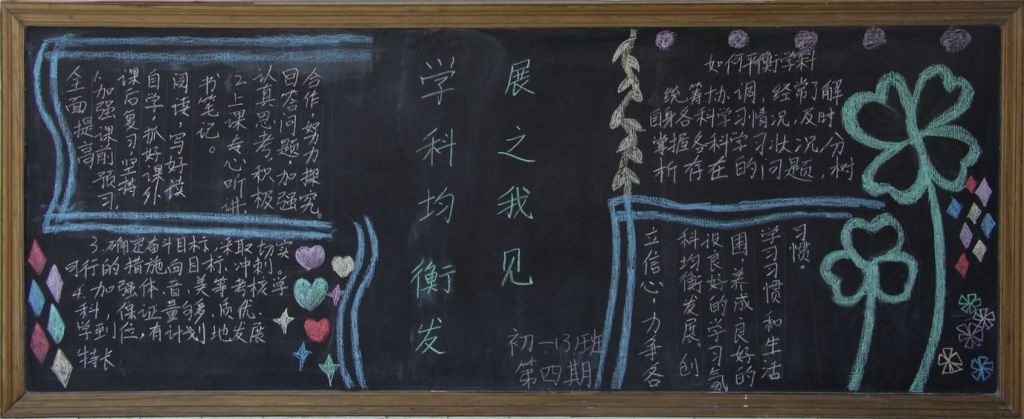 学科均衡发
展之我见
全面提高
1.加强课前预习,
课后复习,坚持
自学,抓好课外
阅读,写好读
书笔记。
2.上课专心听讲,
认真思考,积极
回答问题,加强
合作,努力探究。
3.确定奋斗目标,采取切实
可行的措施向目标冲刺。
4.加强体、音、美等考核,学
科保证量够,质优,
学到位,有计划地发展
特长
如何平衡学科
统筹协调,经常了解
自身各科学习情况,及时
掌握各科学习的状况,分
析存在的问题,树
立信心,力争各
科均衡发展,创
设良好的学习氛
围,养成良好的
学习习惯和生活
习惯。
初一(3)班
第四期